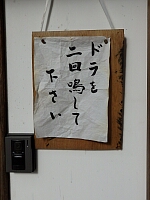 ドラを
二回鳴して
下さい